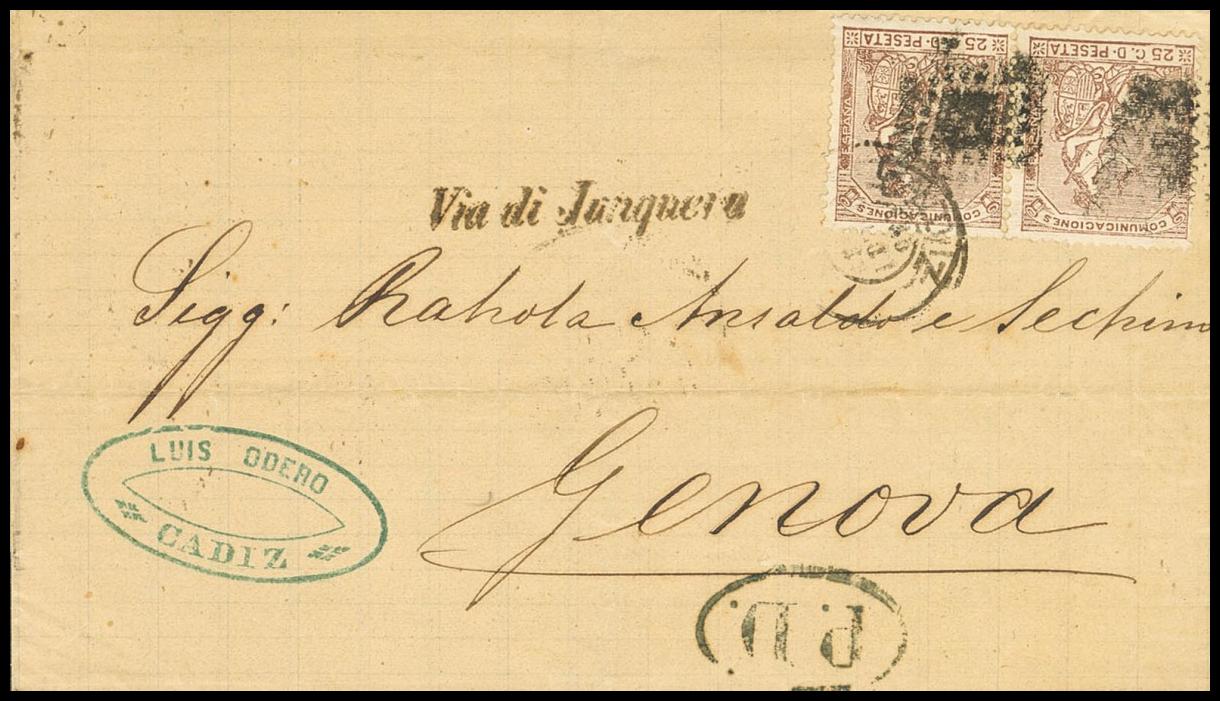 25 C. D. PESETA
ESPAÑA
COMUNICACIONES
25 PESETA
ESPAÑA
COMUNICACIONES
CADIZ
Via di Junquera
Sigg: Rahola Ansaldo e Sechino
LUIS ODERO
CADIZ
Genova
P.D.